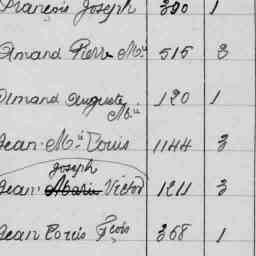 François Joseph 390 1
Amand Pierre M.ie 515 3
Armand Auguste M.ie 120 1
Jean-M.ie Louis 1144 3
Joseph
Jean-Marie Victor 1211 3
Jean Louis Fçois 368 1